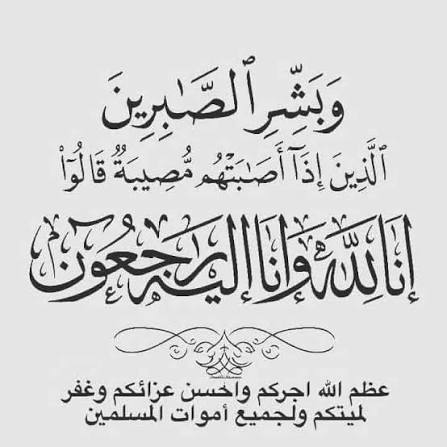 وَبَشِّرِ ٱلصَّـٰبِرِينَ
ٱلَّذِينَ إِذَآ أَصَـٰبَتْهُم مُّصِيبَةٌ قَالُوٓا۟
إِنَّا لِلَّهِ وَإِنَّا إِلَيْهِ رَاجِعُونَ
عظم الله اجركم واحسن عزائكم وغفر
لميتكم ولجميع أموات المسلمين